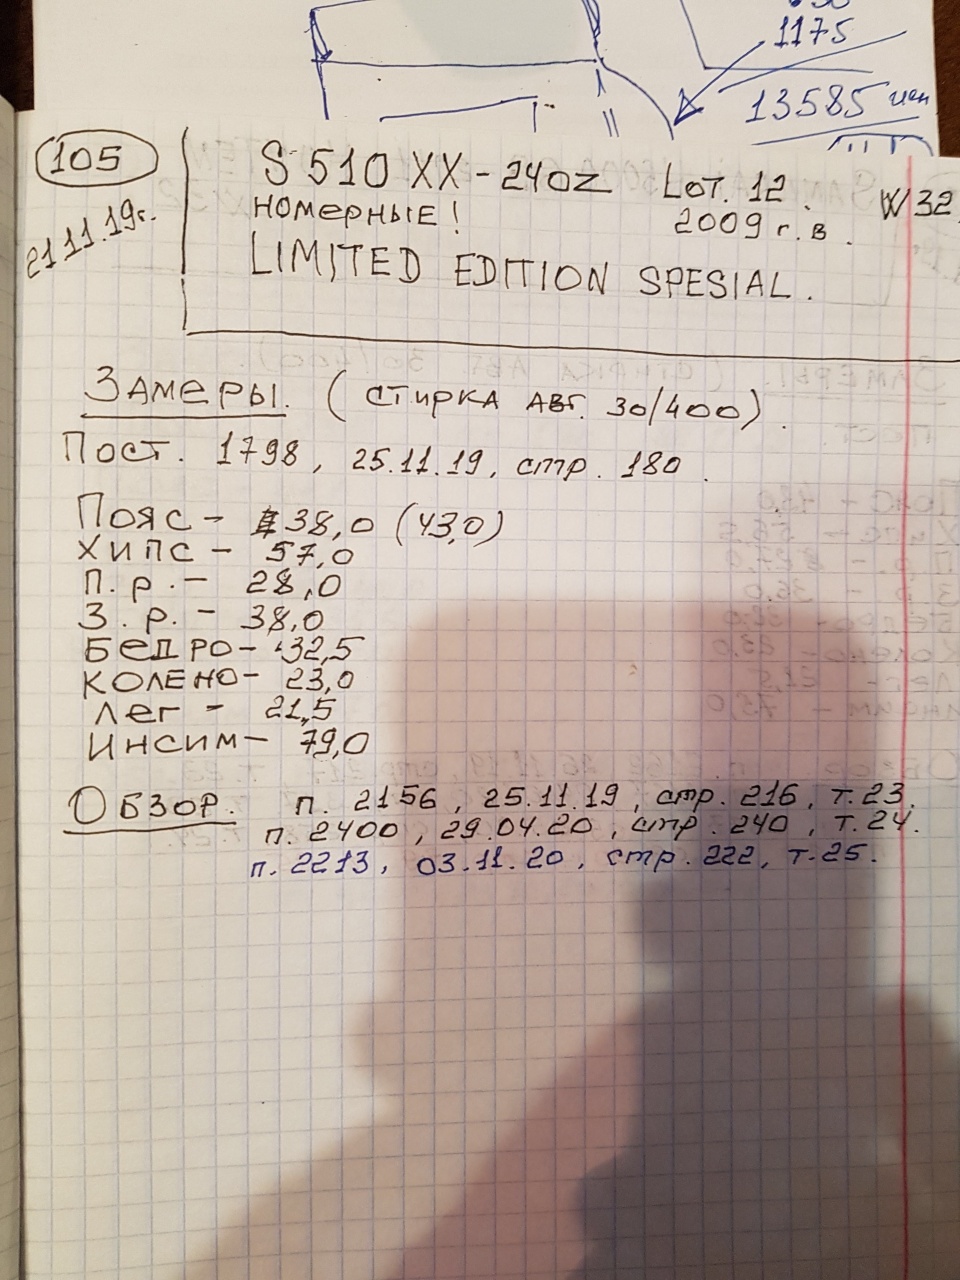 1175
13585 иен
105
21.11.19г.
S510XX-24OZ Lot. 12. W32
номерные! 2009 г.в.
LIMITED EDITION SPESIAL.
Замеры. (стирка авг. 30/400).
Пост. 1798, 25.11.19, стр. 180.
Пояс - 38,0 (43,0)
Хипс - 57,0
П.р. - 28,0
З.р. - 38,0
Бедро - 32,5
Колено - 23,0
Лег - 21,5
Инсим - 79,0
Обзор. п. 2156, 25.11.19, стр. 216, т.23.
п. 2400, 29.04.20, стр. 240, т.24.
п. 2213, 03.11.20, стр. 222, т.25.